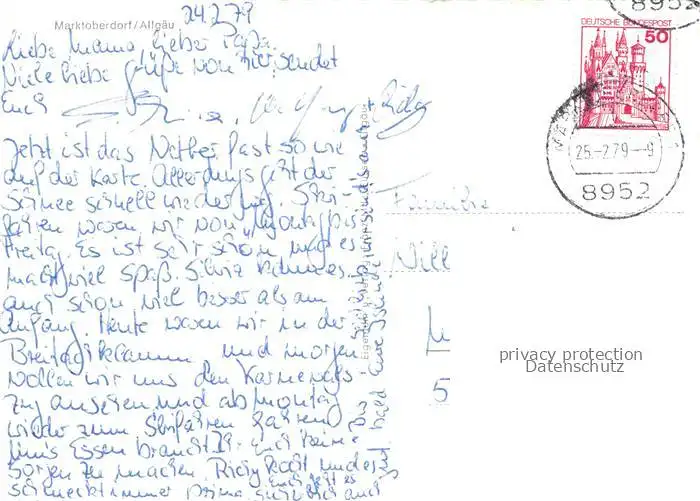 24.2.79
Marktoberdorf/Allgäu
Liebe Mama, lieber Papa.
Viele liebe Grüße von hier sendet
Euch
Jetzt ist das Wetter fast so wie
auf der Karte. Allerdings geht der
Schnee schnell wieder weg. Ski-
fahren waren wir von Montag bis
Freitag. Es ist sehr schön und es
macht viel Spaß. Silvia kann es
auch schon viel besser als am
Anfang. Heute waren wir in der
Breitachklamm und morgen
wollen wir uns den Karnevals-
zug ansehen und ab Montag
wieder zum Skifahren fahren
Ums Essen braucht Ihr Euch keine
Sorgen zu machen. Ricky kocht und es
schmeckt immer prima.
bald Eure
DEUTSCHE BUNDESPOST
50
8952
25.-2.79.-9
8952
Familie
Will
5
privacy protection
Datenschutz